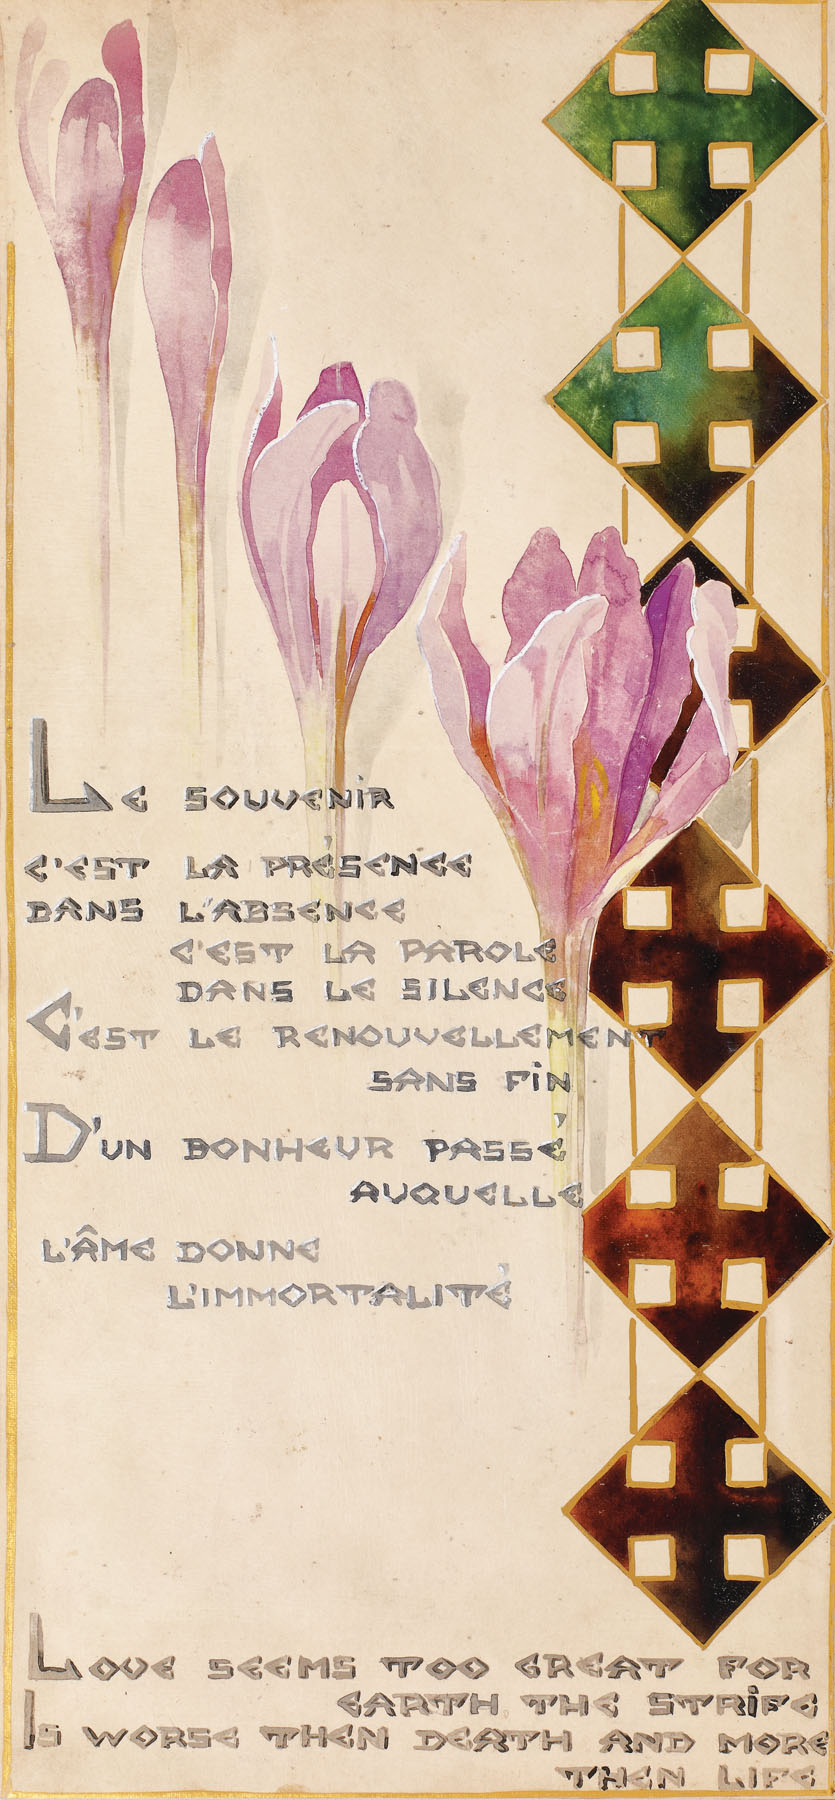 LE SOUVENIR
C'EST LA PRÉSENCE
DANS L'ABSENCE
C'EST LA PAROLE
DANS LE SILENCE
C'EST LE RENOUVELLEMENT
SANS FIN
D'UN BONHEUR PASSÉ
AUQUELLE
L'ÂME DONNE
L'IMMORTALITÉ
LOVE SEEMS TOO GREAT FOR
EARTH THE STRIFE
IS WORSE THEN DEATH AND MORE
THEN LIFE